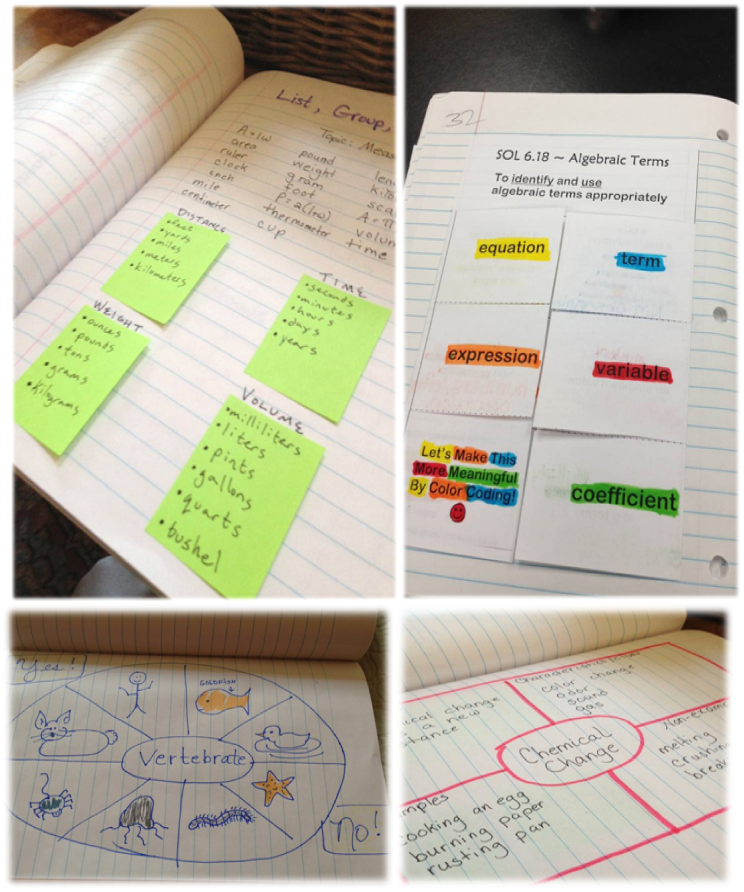 List, Group,
Topic: Meas
A=lw pound len
area weight
ruler gram
clock foot
inch P=2(l+w)
mile thermometer volum
centimeter cup time
DISTANCE
• feet
• yards
• miles
• meters
• kilometers
TIME
• seconds
• minutes
• hours
• days
• years
WEIGHT
• ounces
• pounds
• tons
• grams
• kilograms
VOLUME
• milliliters
• liters
• pints
• gallons
• quarts
• bushel
32
SOL 6.18 ~ Algebraic Terms
To identify and use
algebraic terms appropriately
equation
term
expression
variable
Let's Make This
More Meaningful
By Color Coding!
coefficient
Yes!
GOLDFISH
Vertebrate
No!
ical change
a new
stance
Characteristics
color change
odor
sound
gas
Chemical
Change
Non-exam
melting
crushing
break
mples
cooking an egg
burning paper
rusting pan